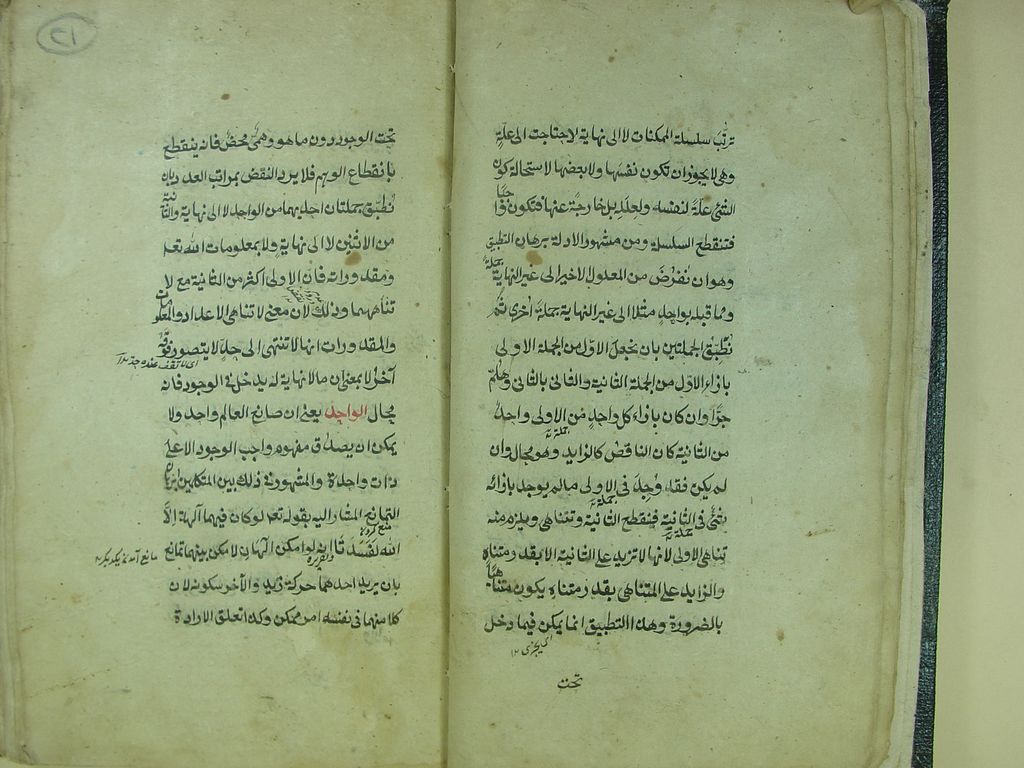 ترتّب سلسلة الممكنات لا الى نهاية لاحتاجت الى علّة
وهى لا يجوز ان تكون نفسها ولا بعضها لاستحالة كون
الشئ علّة لنفسه ولعلله بل خارجة عنها فتكون واجبا
فتنقطع السلسلة ومن مشهور الادلة برهان التطبيق
وهو ان نفرض من المعلول الاخير الى غير النهاية جملة
وما قبله بواحد مثلا الى غير النهاية جملة اخرى ثم
نطبّق الجملتين بان نجعل الاوّل من الجملة الاولى
بازاء الاوّل من الجملة الثانية والثانى بالثانى وهلمّ
جرّا وان كان بازاء كل واحد من الاولى واحد
من الثانية كان الناقص كالزايد وهو محال وان
جملة
لم يكن فقد وجد فى الاولى ما لم يوجد بازائه
شئ فى الثانية فينقطع الثانية وتتناهى ويلزم منه
جملة
تناهى الاولى لانها لا تزيد على الثانية الا بقدر متناه
جملة
والزايد على المتناهى بقدر متناه يكون متناهيا
بالضرورة وهذا التطبيق انما يمكن فيما دخل
اى يجرى ١٢
تحت
٢١
تحت الوجود دون ما هو وهمىّ محض فانه ينقطع
بانقطاع الوهم فلا يرد النقض بمراتب العدد بان
نطبّق جملتان احديهما من الواحد لا الى نهاية والثانية
من الاثنين لا الى نهاية ولا بمعلومات الله تعا
ومقدوراته فان الاولى اكثر من الثانية مع لا
تناهيهما وذلك لان معنى لا تناهى الاعداد والمعلومات
والمقدورات انها لا تنتهى الى حد لا يتصور فوقه
اى لا تقف عند حد
آخر لا بمعنى ان ما لا نهاية له يدخل فى الوجود فانه
محال الواحد يعنى ان صانع العالم واحد ولا
يمكن ان يصدق مفهوم واجب الوجود الا على
ذات واحدة والمشهور فى ذلك بين المتكلمين برهان
التمانع المشار اليه بقوله تعا لو كان فيهما آلهة الّا
الله لفسدتا
وتقريره
انه لو امكن الٓهان لامكن بينهما تمانع
بان يريد احدهما حركة زيد والآخر سكونه لان
كلا منهما فى نفسه امر ممكن وكذا تعلق الارادة